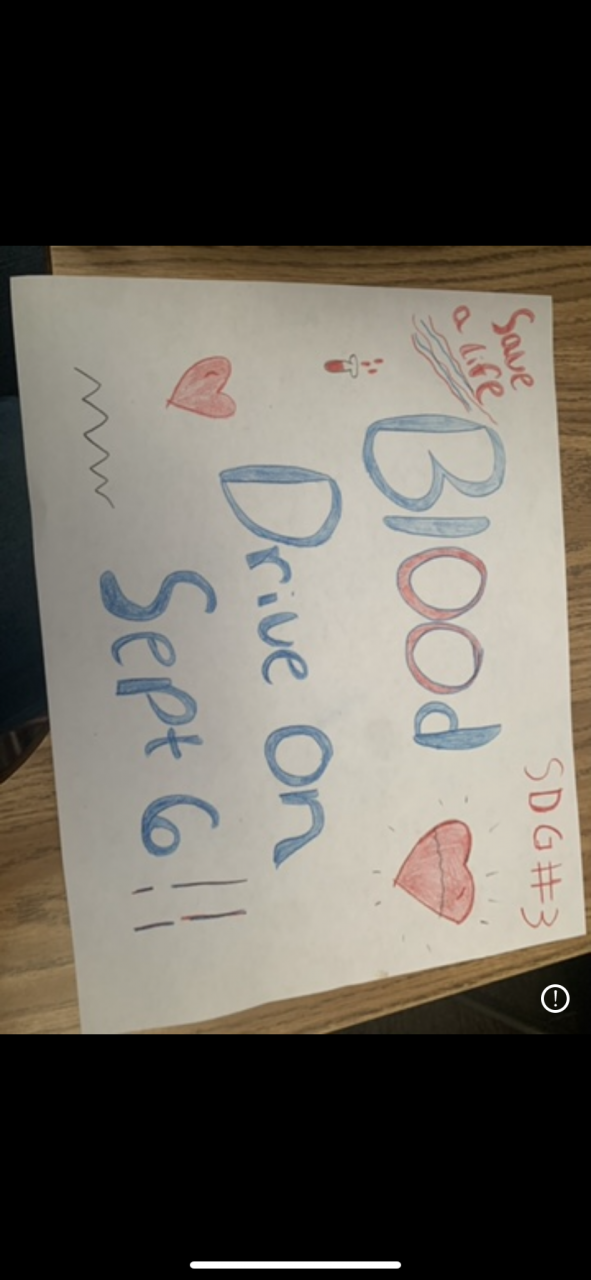 Save
a life
SDG#3
Blood
Drive on
Sept 6!!